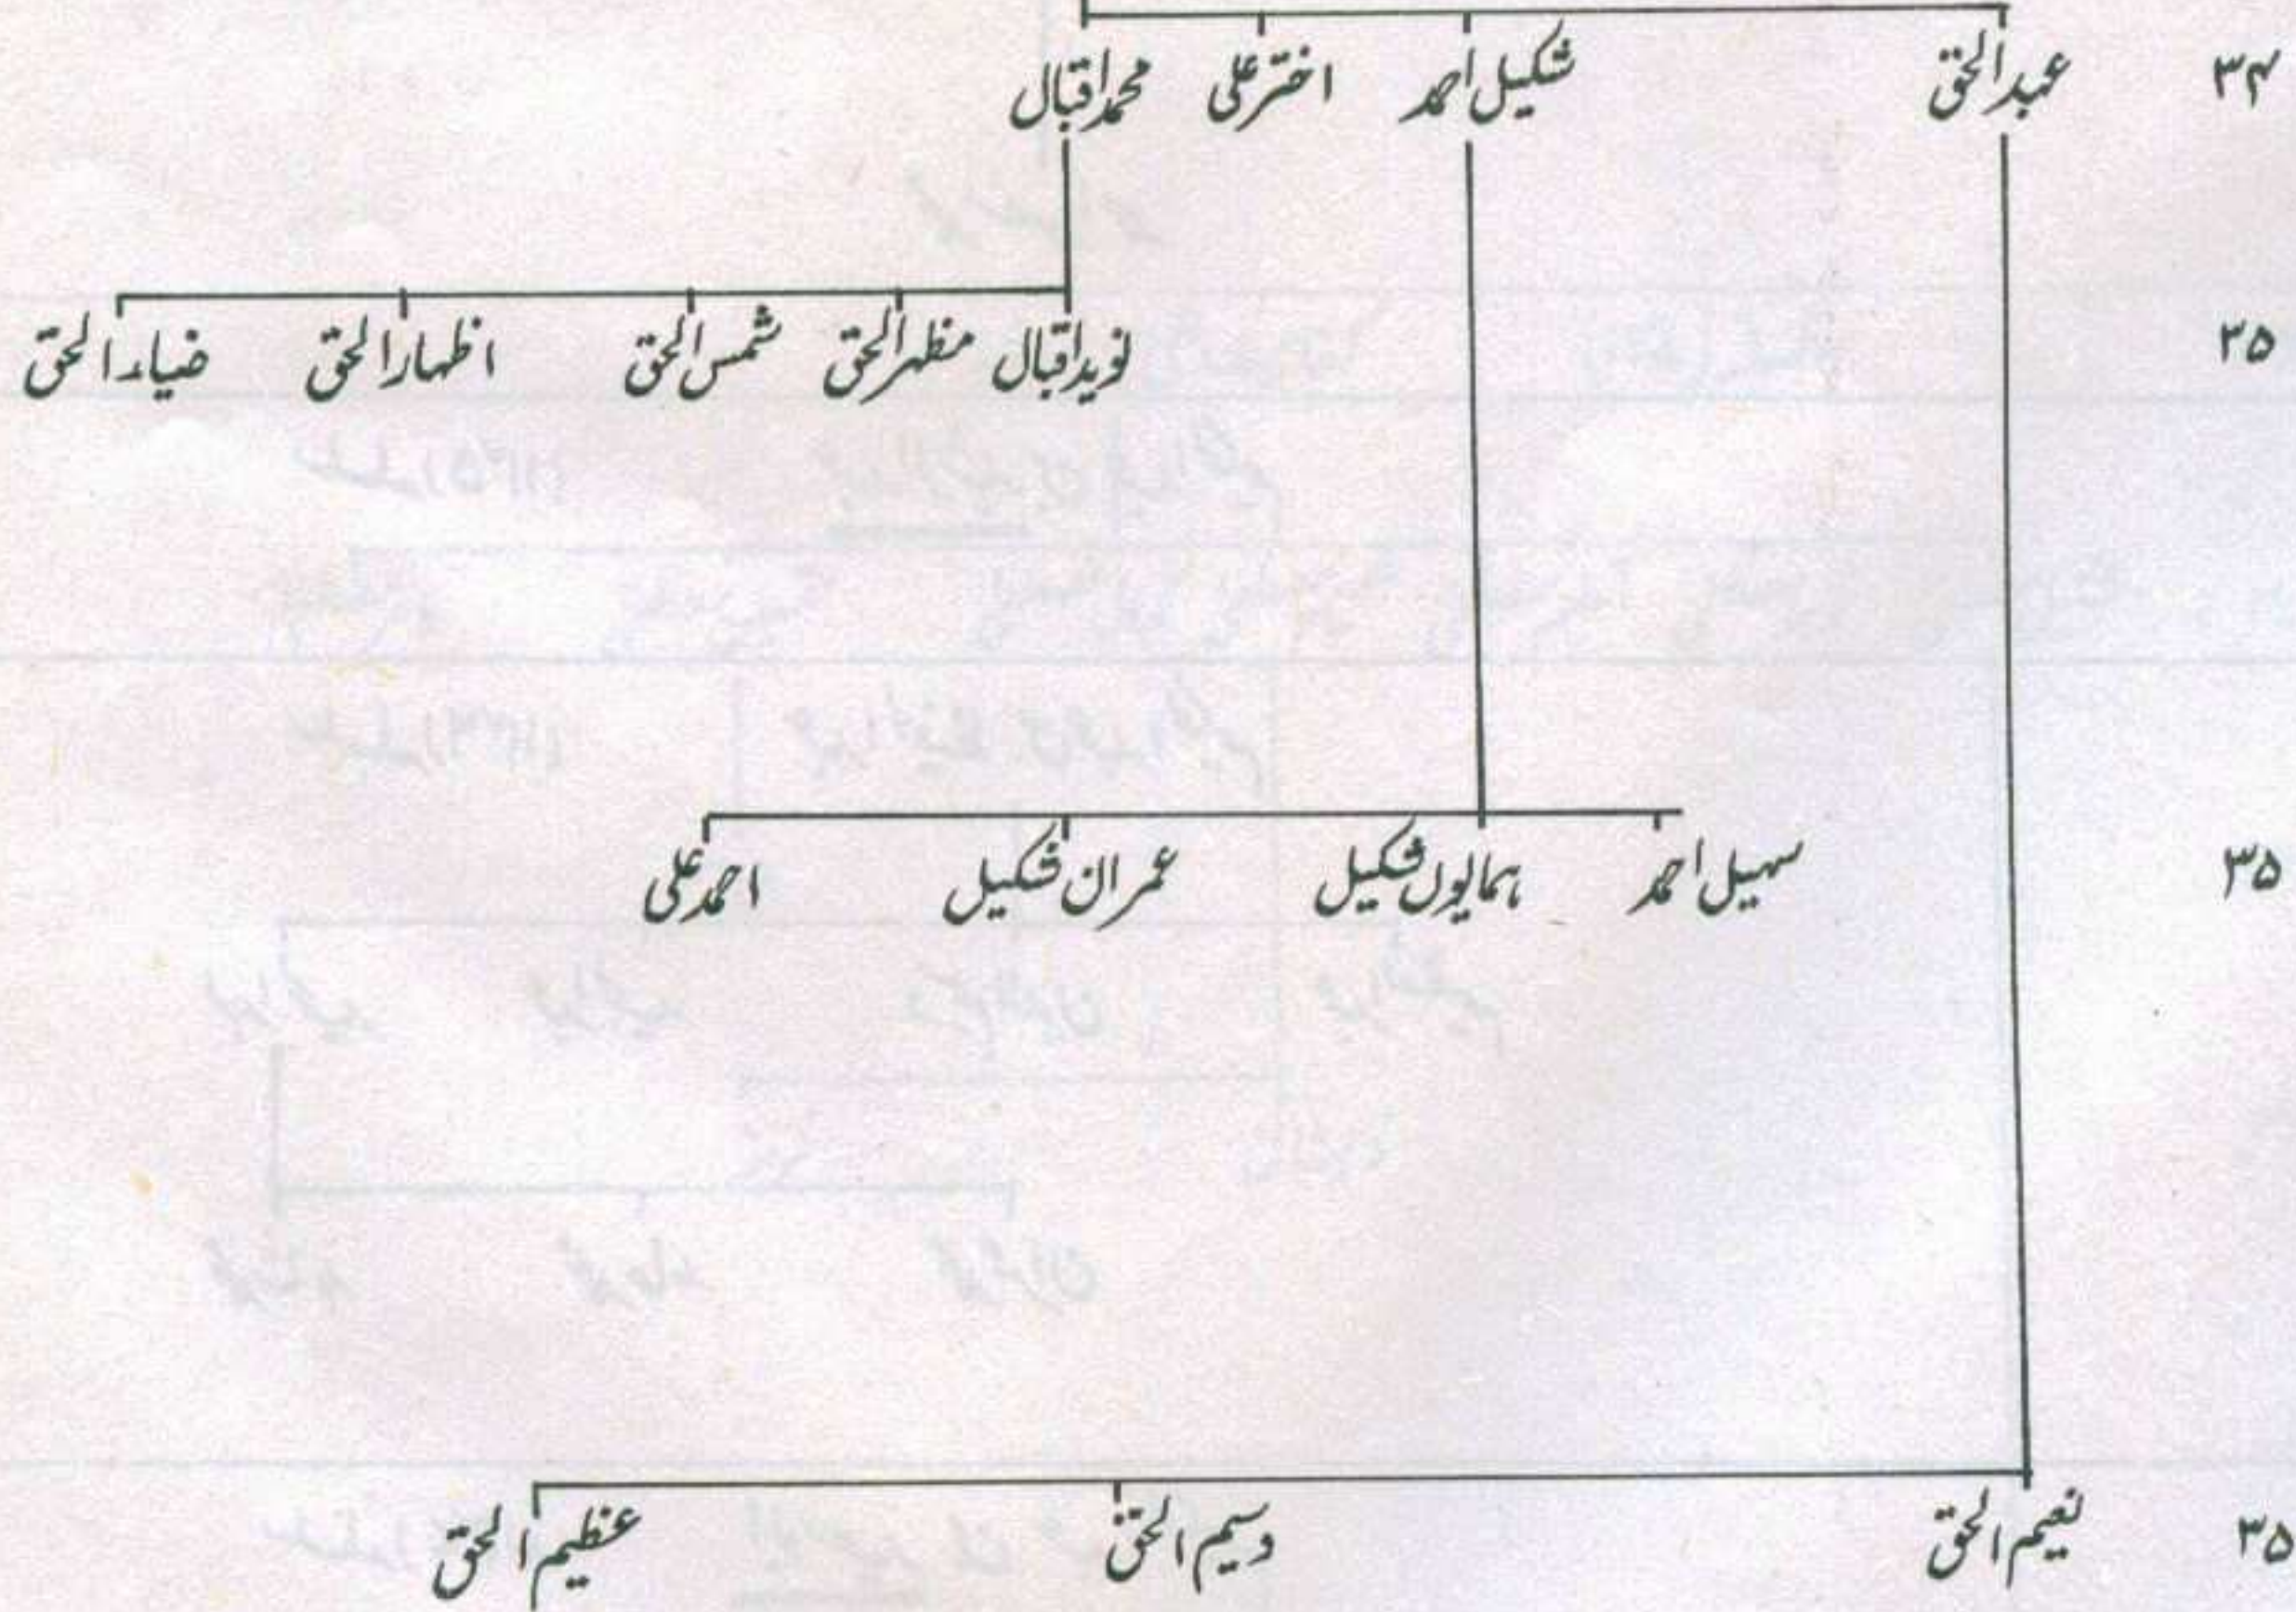 ۳۴ عبدالحق شکیل احمد اختر علی محمد اقبال
۳۵ نوید اقبال مظہر الحق شمس الحق اظہار الحق ضیاء الحق
۳۵ سہیل احمد ہمایوں شکیل عمران شکیل احمد علی
۳۵ نعیم الحق وسیم الحق عظیم الحق